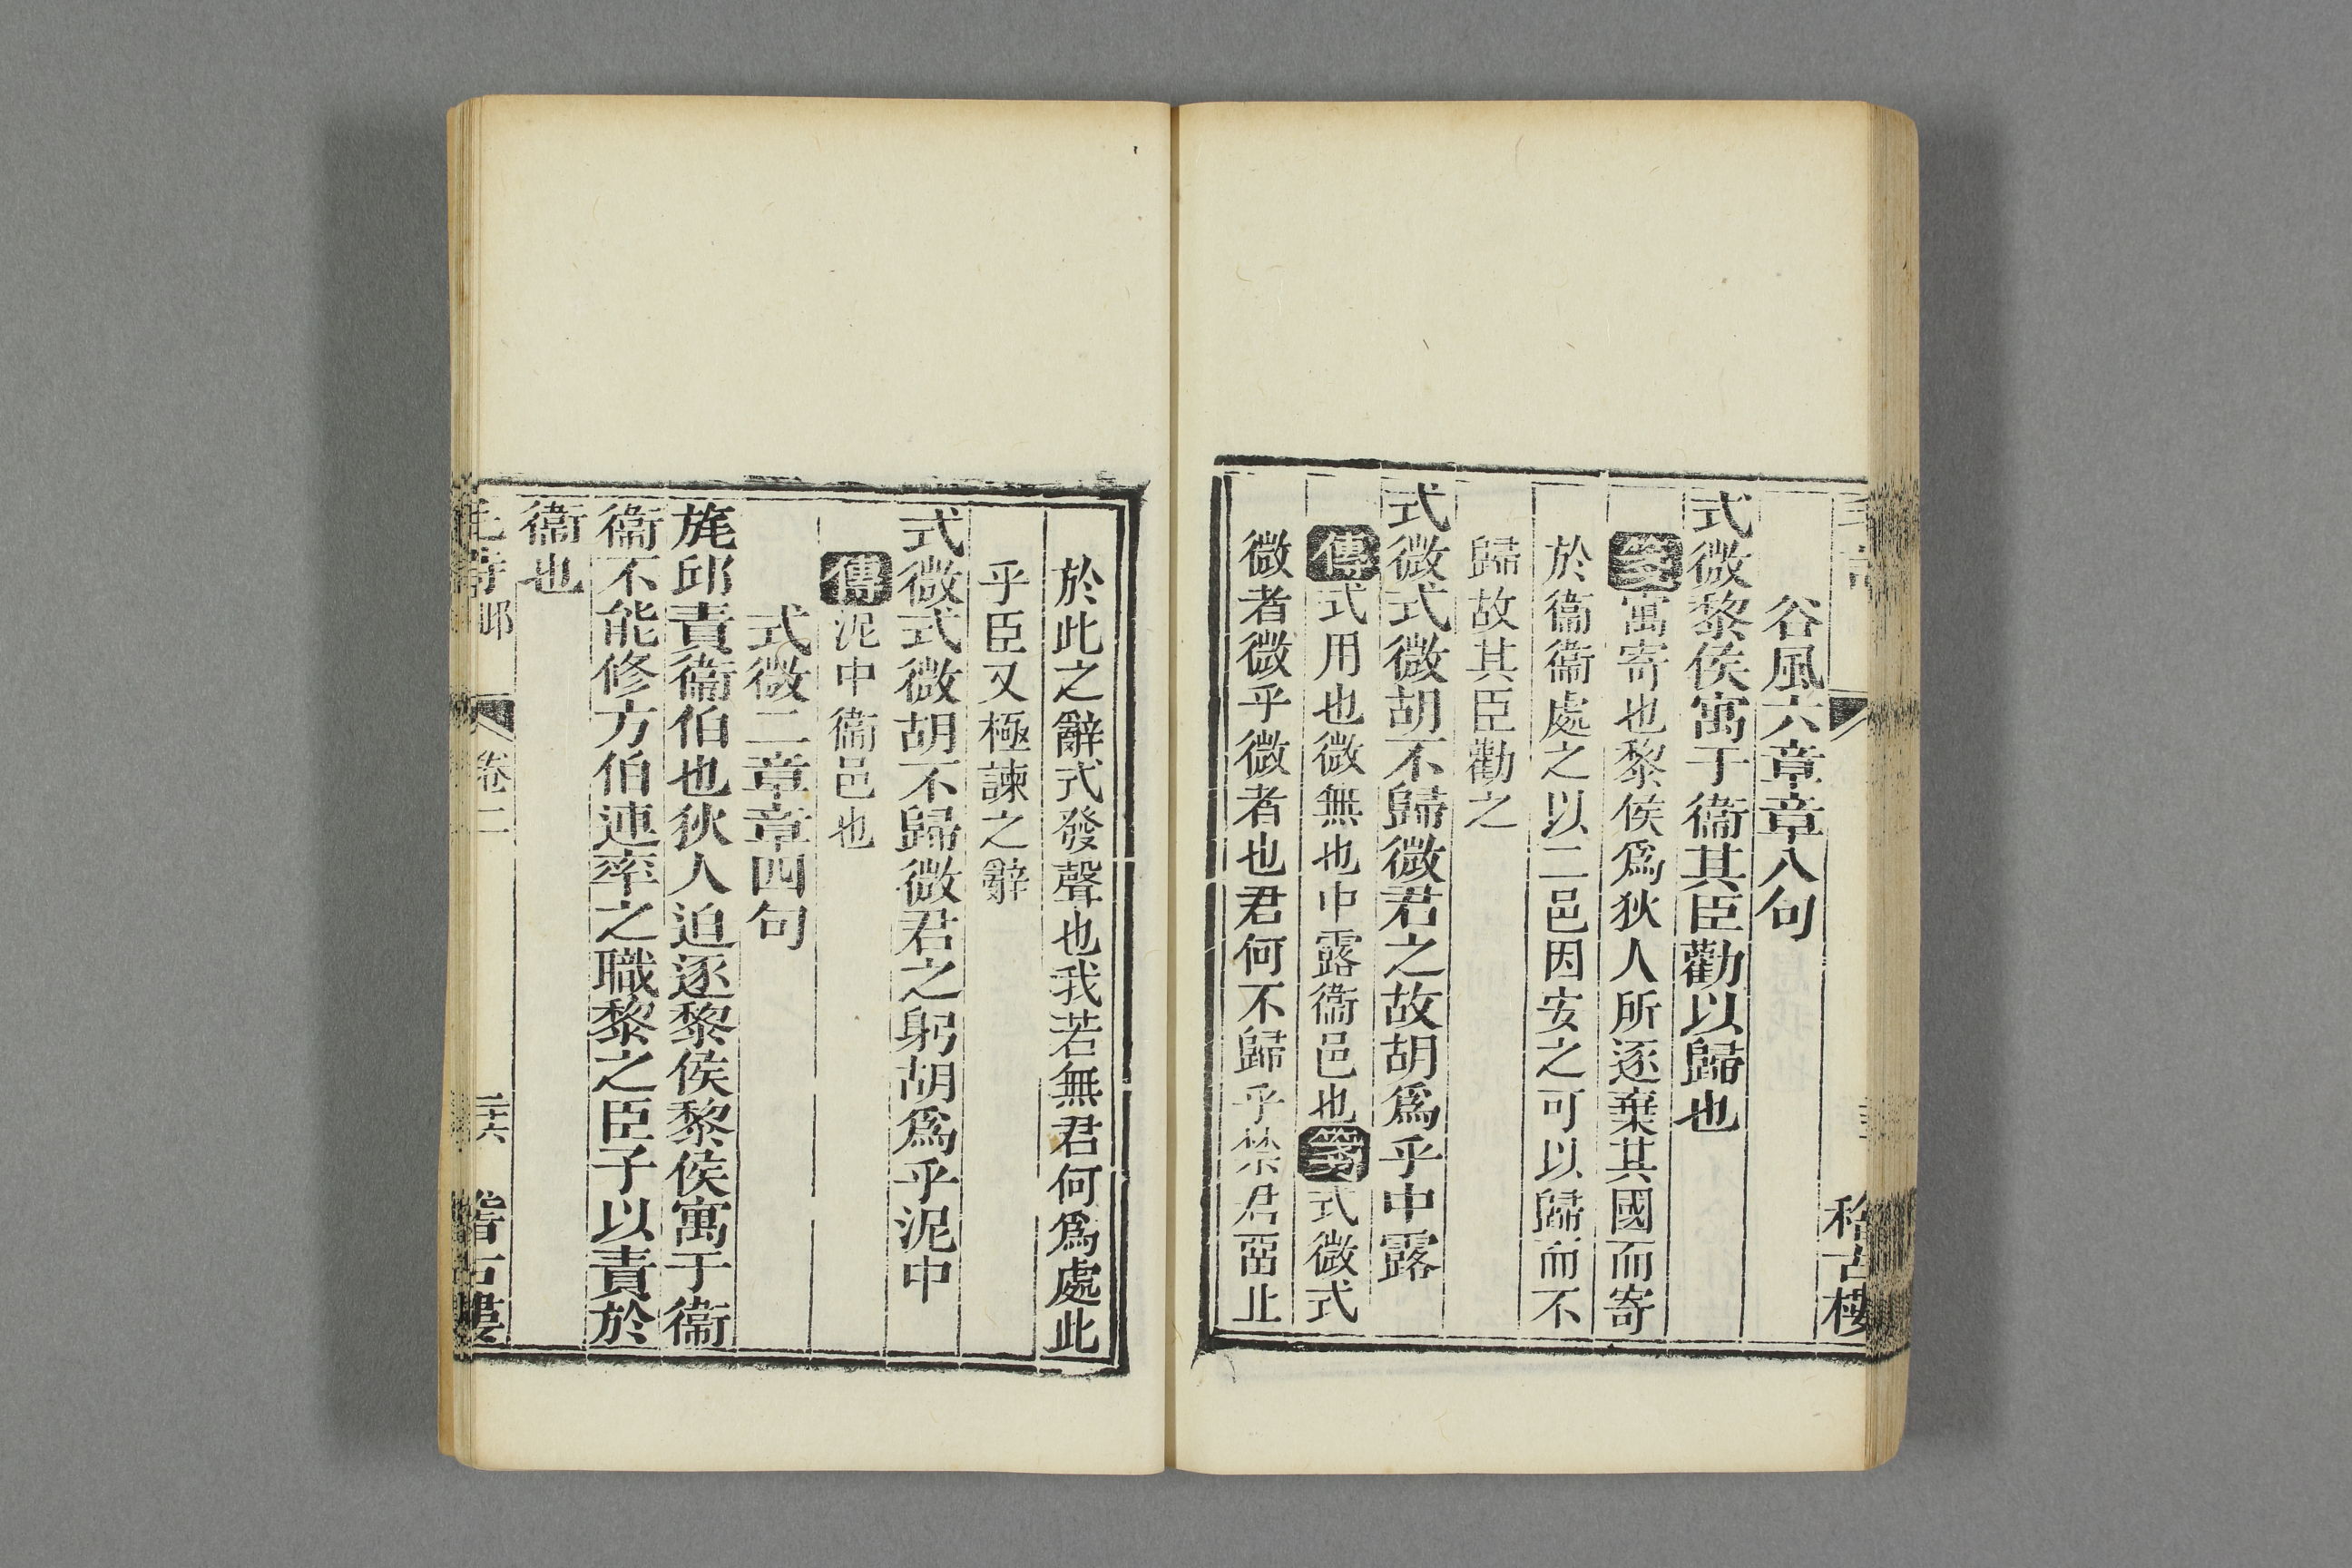 谷風六章章八句
式微黎侯寓于衞其臣勸以歸也
箋寓寄也黎侯爲狄人所逐棄其國而寄
於衞衞處之以二邑因安之可以歸而不
歸故其臣勸之
式微式微胡不歸微君之故胡爲乎中露
傳式用也微無也中露衞邑也箋式微式
微者微乎微者也君何不歸乎禁君畱止
於此之辭式發聲也我若無君何爲處此
乎臣又極諫之辭
式微式微胡不歸微君之躬胡爲乎泥中
傳泥中衞邑也
式微二章章四句
旄邱責衞伯也狄人迫逐黎侯黎侯寓于衞
衞不能修方伯連率之職黎之臣子以責於
衞也
毛詩 邶 卷二 二十六 稽古樓